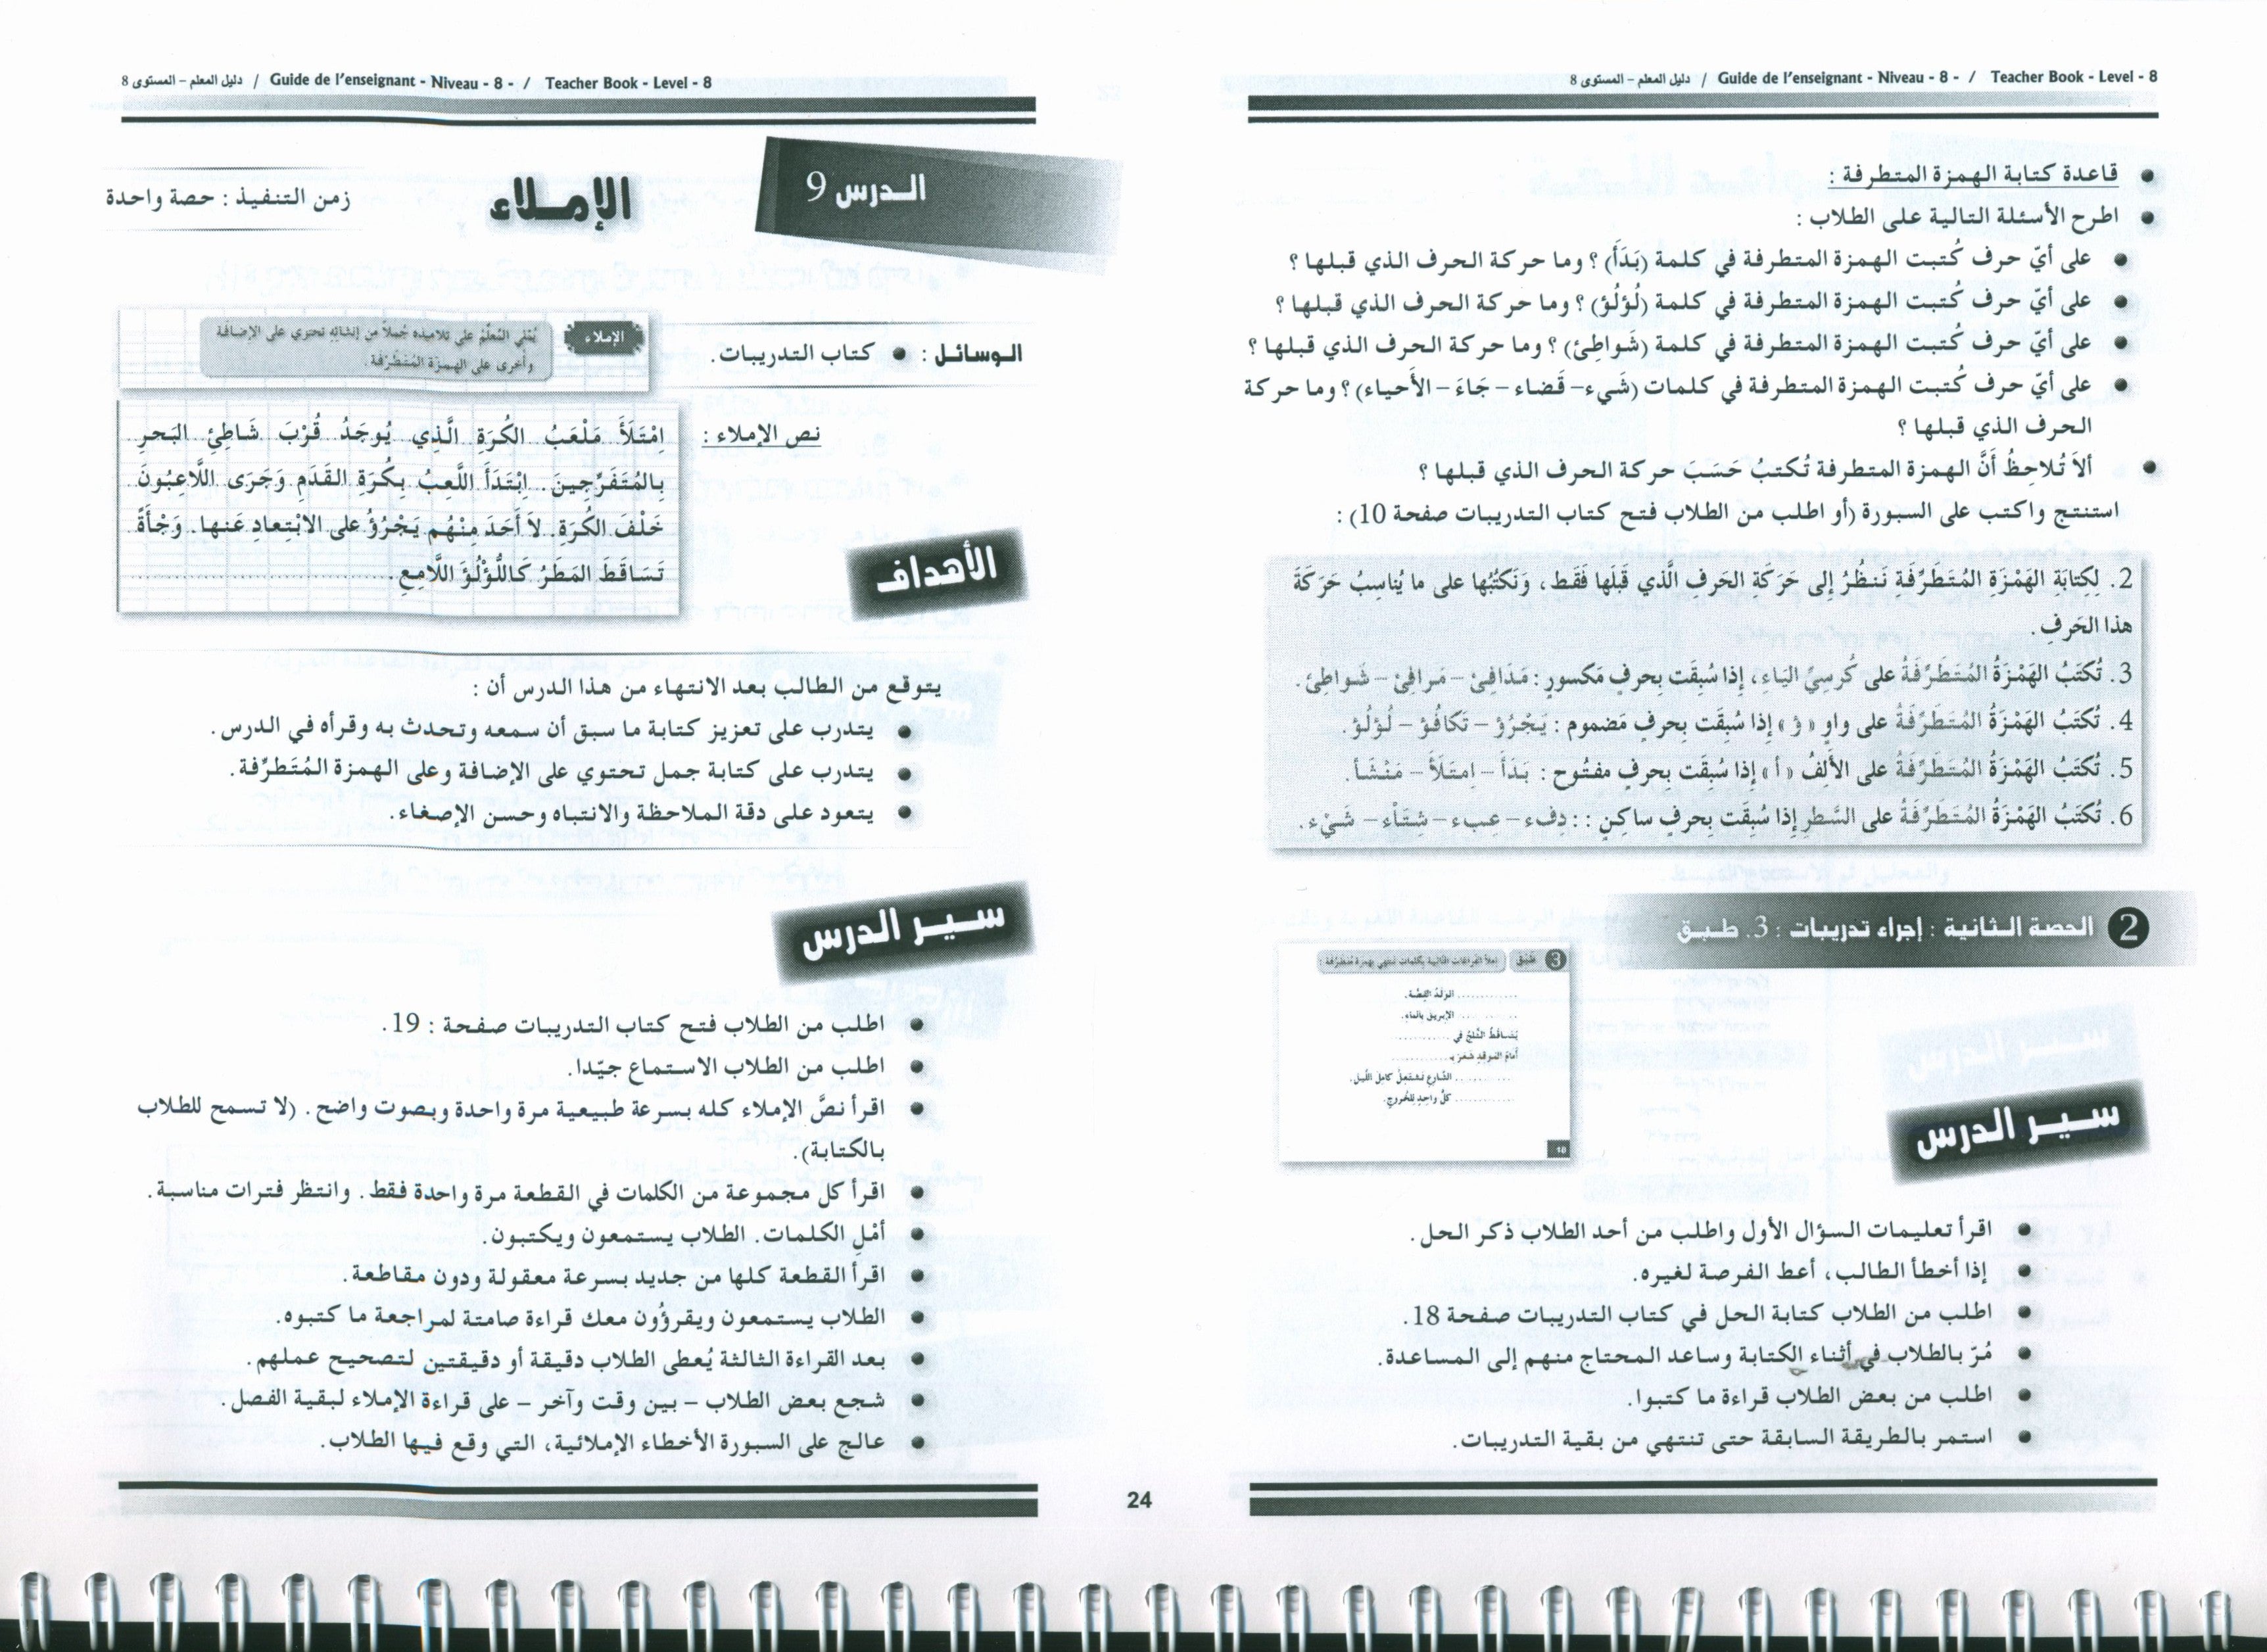 دليل المعلم – المستوى 8 / Guide de l'enseignant - Niveau - 8 - / Teacher Book - Level - 8
قاعدة كتابة الهمزة المتطرفة :
اطرح الأسئلة التالية على الطلاب :
على أيّ حرف كُتبت الهمزة المتطرفة في كلمة (بَدَأَ) ؟ وما حركة الحرف الذي قبلها ؟
على أيّ حرف كُتبت الهمزة المتطرفة في كلمة (لُؤلُؤ) ؟ وما حركة الحرف الذي قبلها ؟
على أيّ حرف كُتبت الهمزة المتطرفة في كلمة (شَواطِئ) ؟ وما حركة الحرف الذي قبلها ؟
على أيّ حرف كُتبت الهمزة المتطرفة في كلمات (شَيء– قَضاء – جَاءَ – الأَحياء) ؟ وما حركة
الحرف الذي قبلها ؟
ألاَ تُلاحِظُ أَنَّ الهمزة المتطرفة تُكتبُ حَسَبَ حركة الحرف الذي قبلها ؟
استنتج واكتب على السبورة (أو اطلب من الطلاب فتح كتاب التدريبات صفحة 10) :
2. لِكِتابَةِ الهَمْزَةِ المُتَطَرِّفَةِ نَنظُرُ إلى حَرَكَةِ الحَرفِ الَّذي قَبلَها فَقَط ، وَنَكتُبُها على ما يُناسِبُ حَرَكَةَ
هذا الحَرفِ.
3. تُكتَبُ الهَمْزَةُ المُتَطَرِّفَةُ على كُرسِيِّ اليَاءِ، إذا سُبِقَت بِحرفٍ مَكسورٍ : مَدَافِئ – مَرافِئ – شَواطِئ.
4. تُكتَبُ الهَمْزَةُ المُتَطَرِّفَةُ على واوٍ « ؤ » إذا سُبِقَت بِحرفٍ مَضموم : يَجْرُؤ – تَكافُؤ – لُؤلُؤ.
5. تُكتَبُ الهَمْزَةُ المُتَطَرِّفَةُ على الأَلِفُ « أ » إذا سُبِقَت بِحرفٍ مفتُوح : بَدَأَ – اِمتَلَأَ – مَنْشَأ.
6. تُكتَبُ الهَمْزَةُ المُتَطَرِّفَةُ على السَّطرِ إذا سُبِقَت بِحرفٍ ساكِنٍ : : دِفء – عِبء – شِتَاء – شَيْء.
2 الحصة الثانية : إجراء تدريبات : 3. طبق
3 طَبِّق املأ الفراغات التالية بكلمات تنتهي بهمزة مُتَطَرِّفة :
............ الوَلَدُ القِصَّة.
............ الإبريق بالماءِ.
يَتَساقَطُ الثَّلجُ في ............
أمامَ المَوقِدِ شَعَرَ بِـ ............
............ الشّارِعِ تَشتَعِلُ كامِلَ اللَّيلِ.
............ كلُّ واحِدٍ لِلخُروجِ.
18
سير الدرس
اقرأ تعليمات السؤال الأول واطلب من أحد الطلاب ذكر الحل.
إذا أخطأ الطالب، أعط الفرصة لغيره.
اطلب من الطلاب كتابة الحل في كتاب التدريبات صفحة 18.
مُرّ بالطلاب في أثناء الكتابة وساعد المحتاج منهم إلى المساعدة.
اطلب من بعض الطلاب قراءة ما كتبوا.
استمر بالطريقة السابقة حتى تنتهي من بقية التدريبات.
دليل المعلم – المستوى 8 / Guide de l'enseignant - Niveau - 8 - / Teacher Book - Level - 8
الدرس 9
الإملاء
زمن التنفيذ : حصة واحدة
الوسائل : كتاب التدريبات.
الإملاء
يُمْلي المُعلِّمُ على تلاميذه جُملاً من إنشائِهِ تحتوي على الإضافة
وأُخرى على الهمزة المُتَطَرِّفة.
نص الإملاء :
اِمْتَلَأَ مَلْعَبُ الكُرَةِ الَّذِي يُوجَدُ قُرْبَ شَاطِئِ البَحرِ
بِالمُتَفَرِّجِينَ. اِبْتَدَأَ اللَّعِبُ بِكُرَةِ القَدَمِ وَجَرَى اللَّاعِبُونَ
خَلْفَ الكُرَةِ. لاَ أَحَدَ مِنْهُم يَجْرُؤُ على الابْتِعادِ عَنها. وَجْأَةً
تَسَاقَطَ المَطَرُ كَاللُّؤْلُؤِ اللَّامِعِ.
الأهداف
يتوقع من الطالب بعد الانتهاء من هذا الدرس أن :
يتدرب على تعزيز كتابة ما سبق أن سمعه وتحدث به وقرأه في الدرس.
يتدرب على كتابة جمل تحتوي على الإضافة وعلى الهمزة المُتَطَرِّفة.
يتعود على دقة الملاحظة والانتباه وحسن الإصغاء.
سير الدرس
اطلب من الطلاب فتح كتاب التدريبات صفحة : 19.
اطلب من الطلاب الاستماع جيّدا.
اقرأ نصَّ الإملاء كله بسرعة طبيعية مرة واحدة وبصوت واضح. (لا تسمح للطلاب
بالكتابة).
اقرأ كل مجموعة من الكلمات في القطعة مرة واحدة فقط. وانتظر فترات مناسبة.
أمْلِ الكلمات. الطلاب يستمعون ويكتبون.
اقرأ القطعة كلها من جديد بسرعة معقولة ودون مقاطعة.
الطلاب يستمعون ويقرؤُون معك قراءة صامتة لمراجعة ما كتبوه.
بعد القراءة الثالثة يُعطى الطلاب دقيقة أو دقيقتين لتصحيح عملهم.
شجع بعض الطلاب – بين وقت وآخر – على قراءة الإملاء لبقية الفصل.
عالج على السبورة الأخطاء الإملائية، التي وقع فيها الطلاب.
24